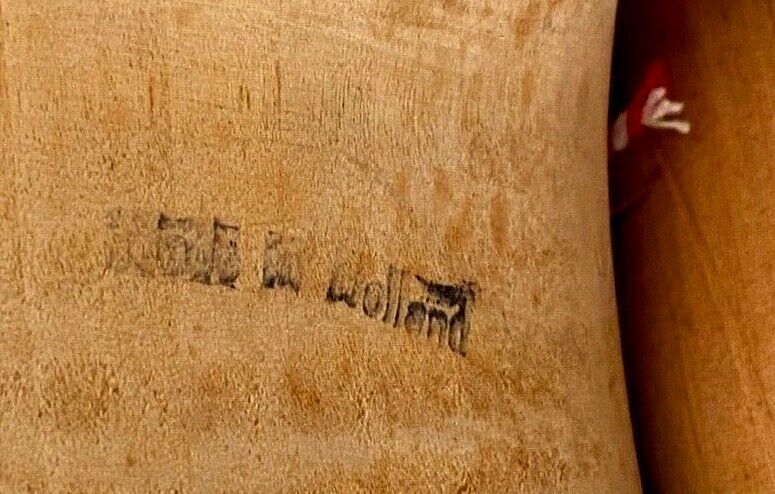 Made in Holland